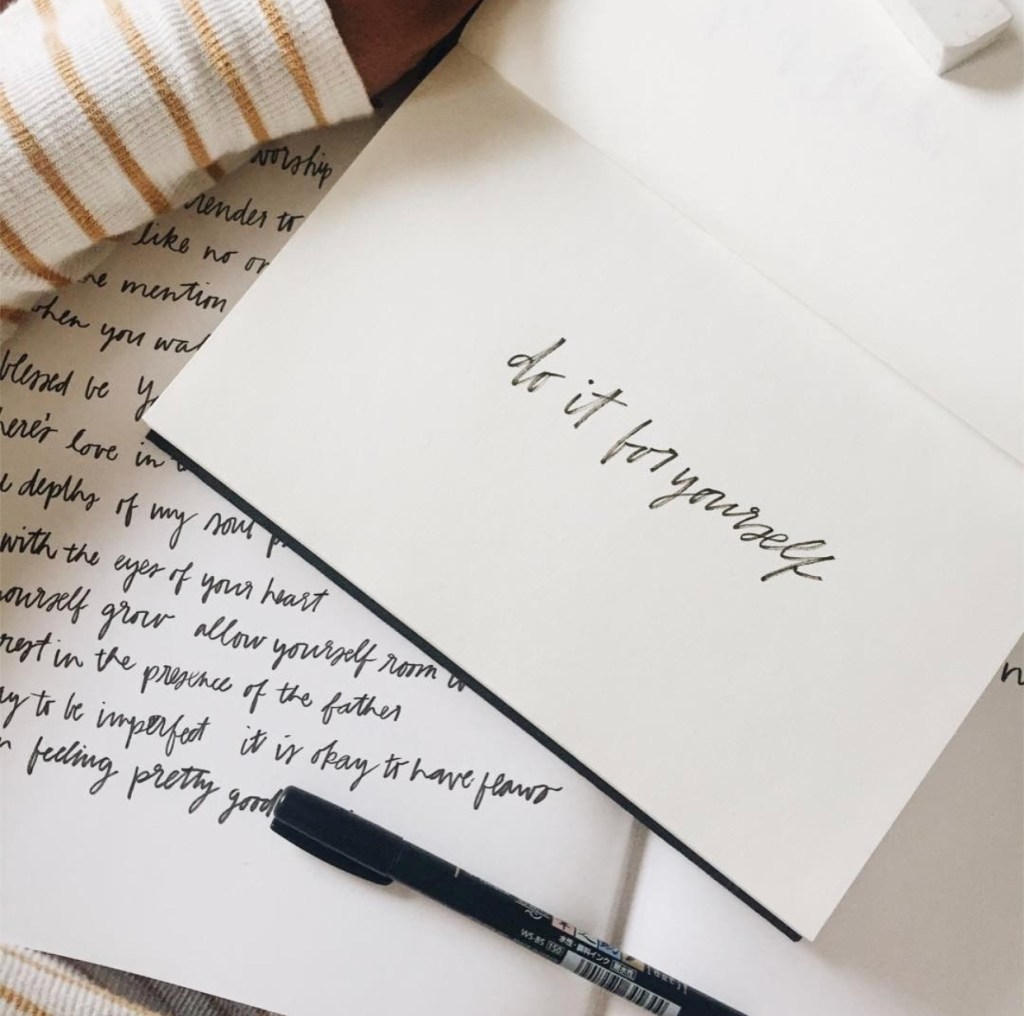 worship
render to
like no or
he mention
when you wal
blessed be y
here's love in
depths of my soul p
with the eyes of your heart
yourself grow allow yourself room to
rest in the presence of the father
ay to be imperfect it is okay to have flaws
feeling pretty good
do it for yourself
WS-BS 150
水性・顔料インク